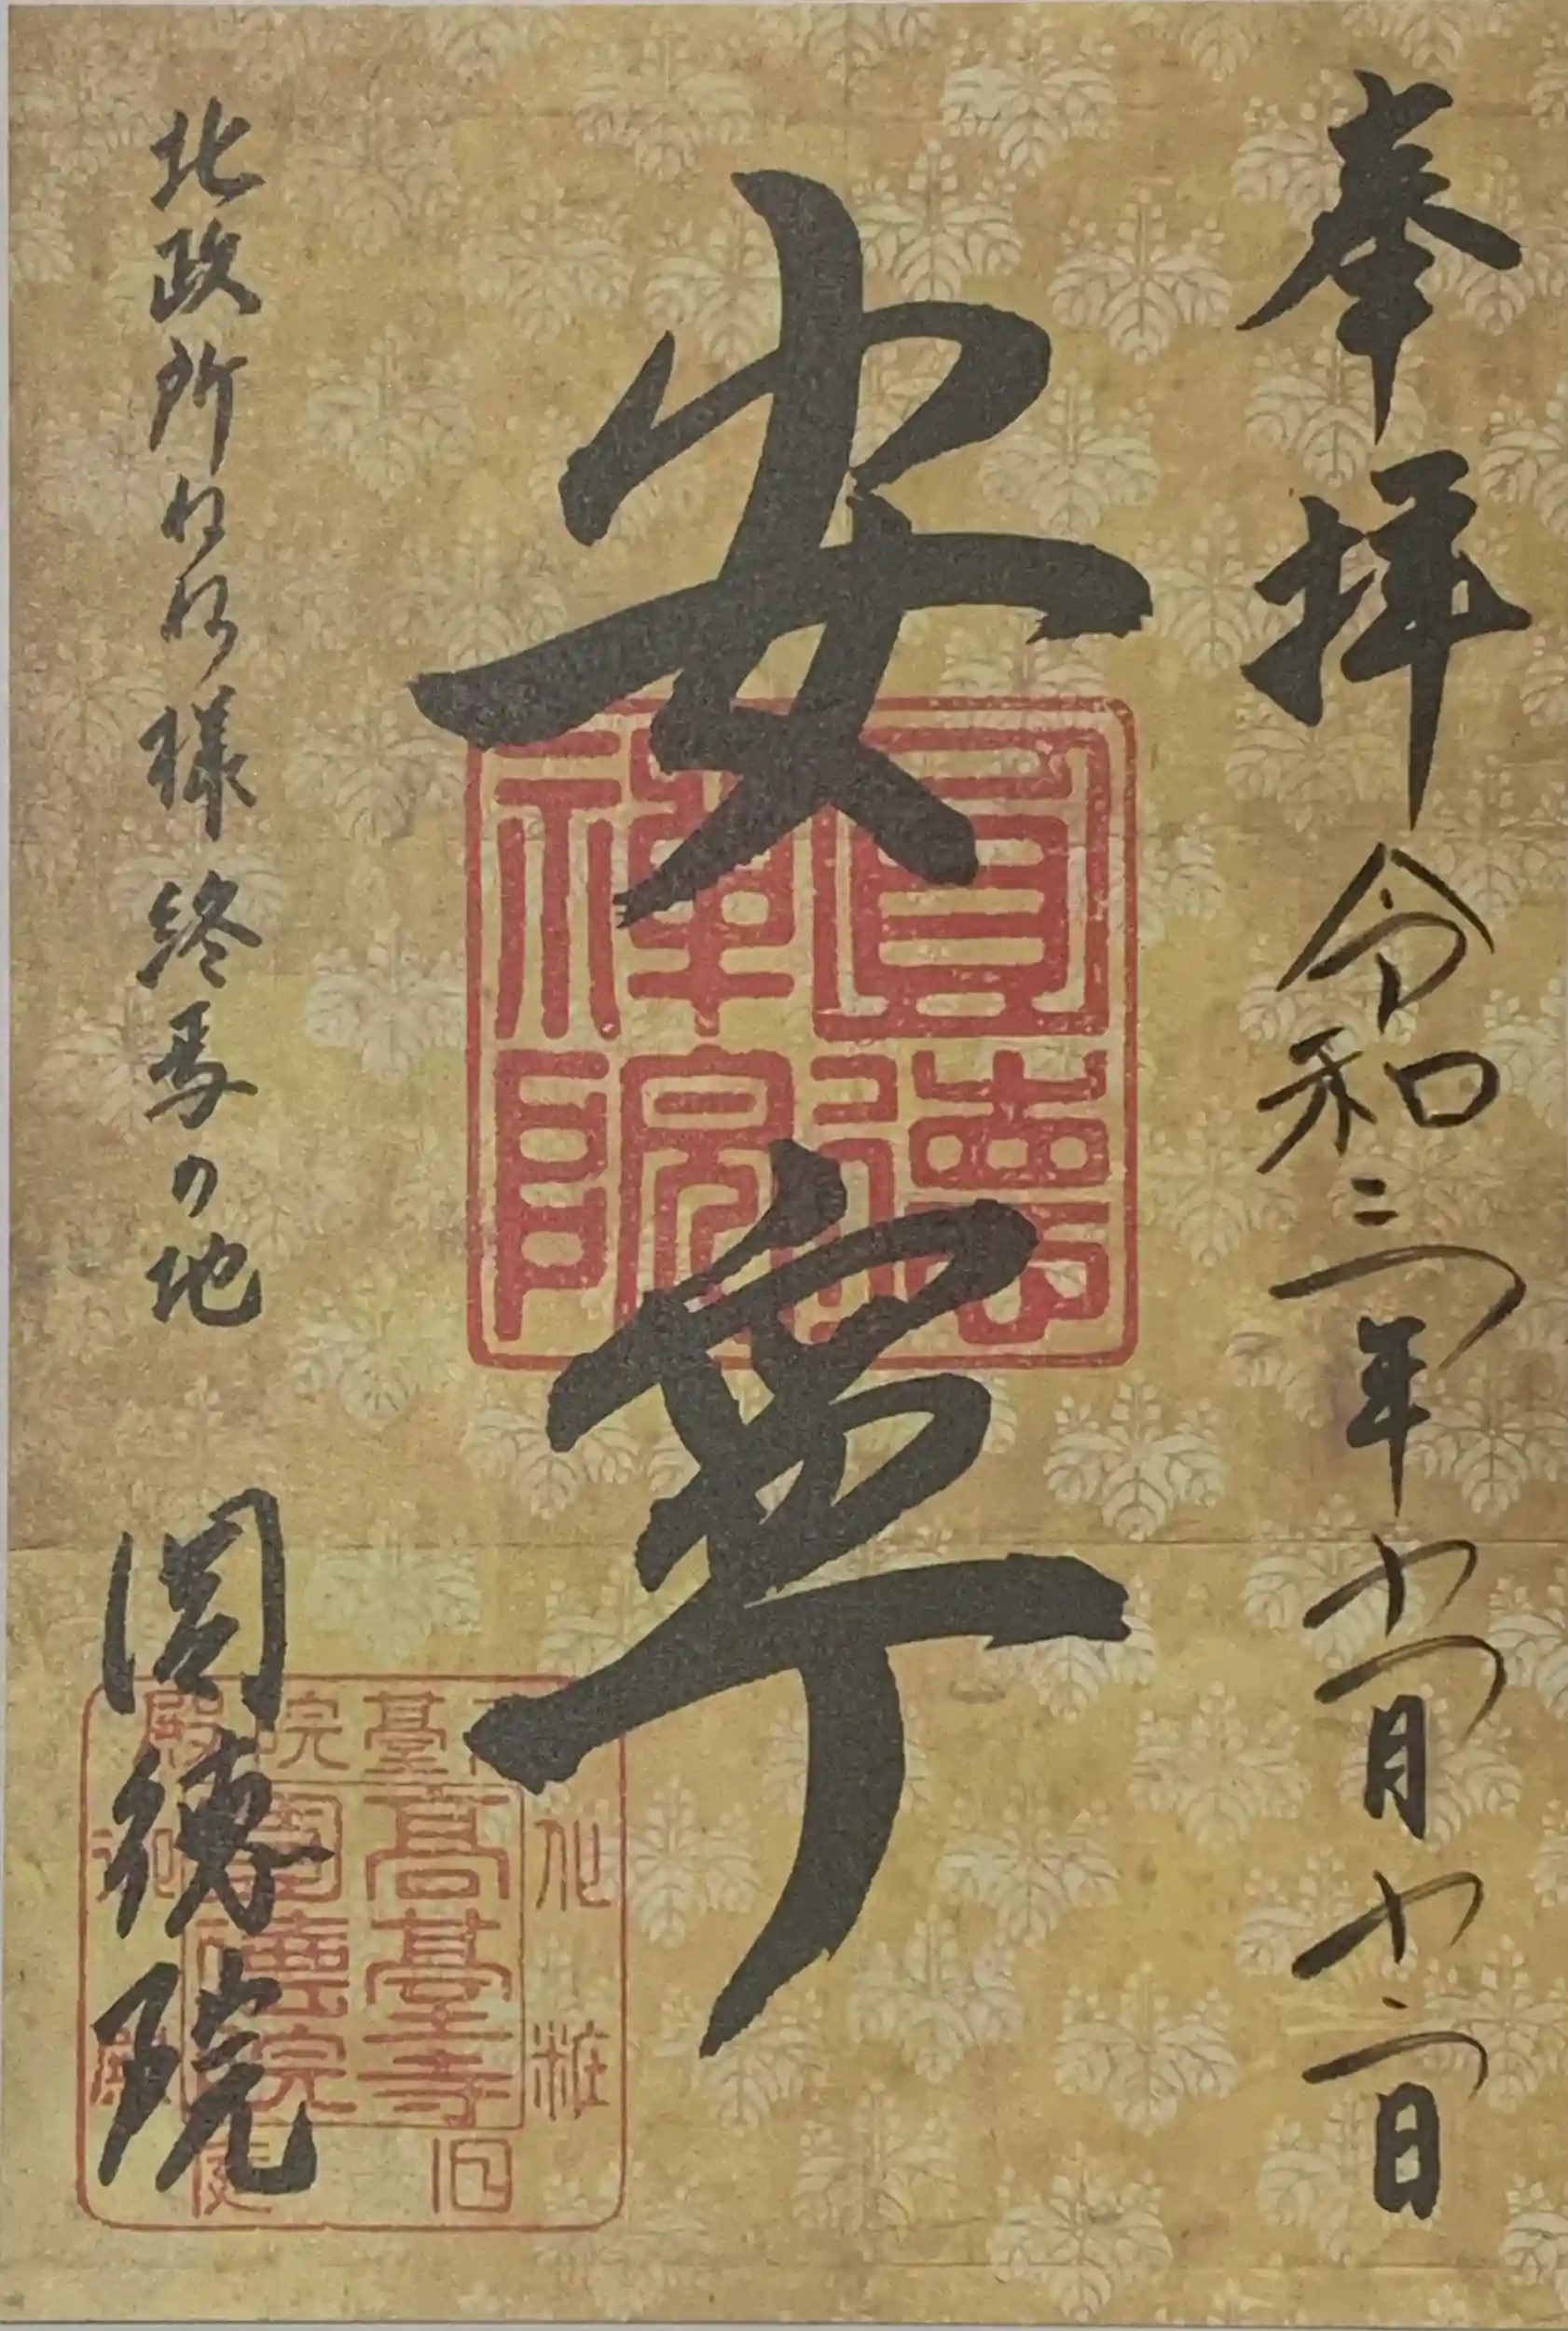 奉拝 令和三年十一月十二日
安寧
圓德
禪院
北政所ねね様終焉の地
圓徳院
高臺寺
圓德院
化粧